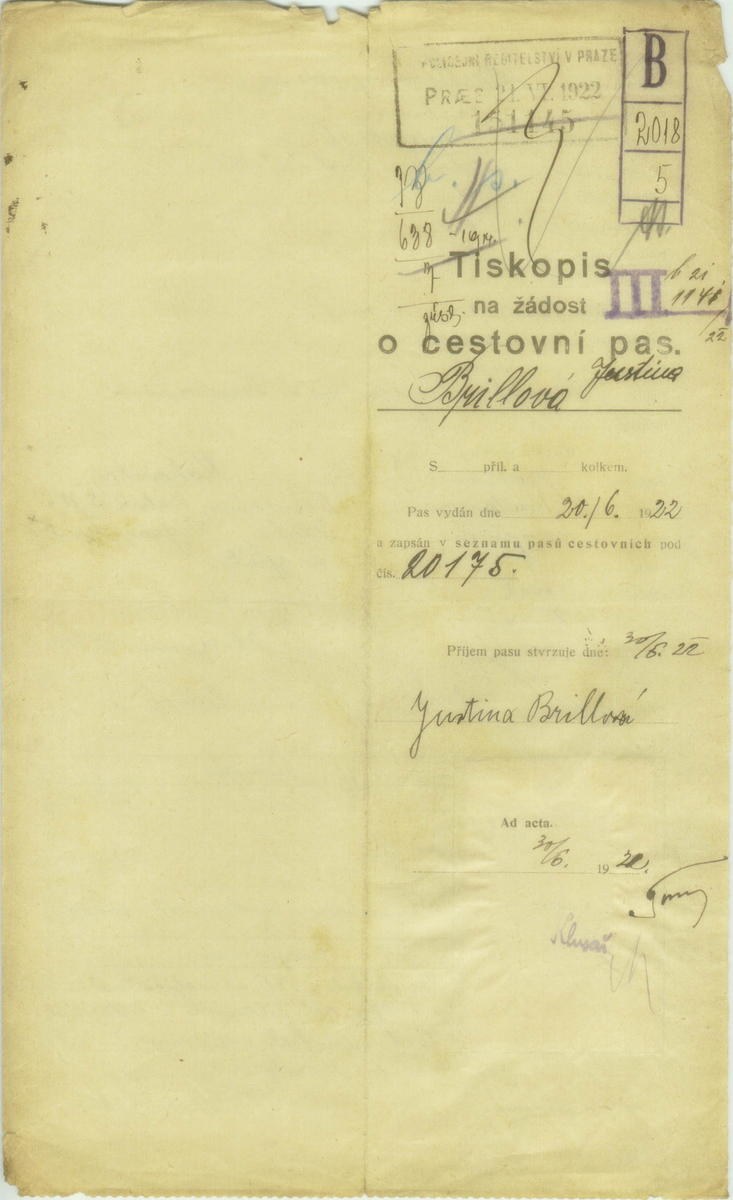 POLICEJNÍ ŘEDITELSTVÍ V PRAZE
PRÆS 21. VI. 1922
151145
B
2018
5
78
638
7
III
1148
22
Tiskopis
na žádost
o cestovní pas.
Brillová Justina
S příl. a kolkem.
Pas vydán dne 20./6. 1922
a zapsán v seznamu pasů cestovních pod
čís. 20175.
Příjem pasu stvrzuje dne: 30/6. 22
Justina Brillová
Ad acta.
30/6. 1922.